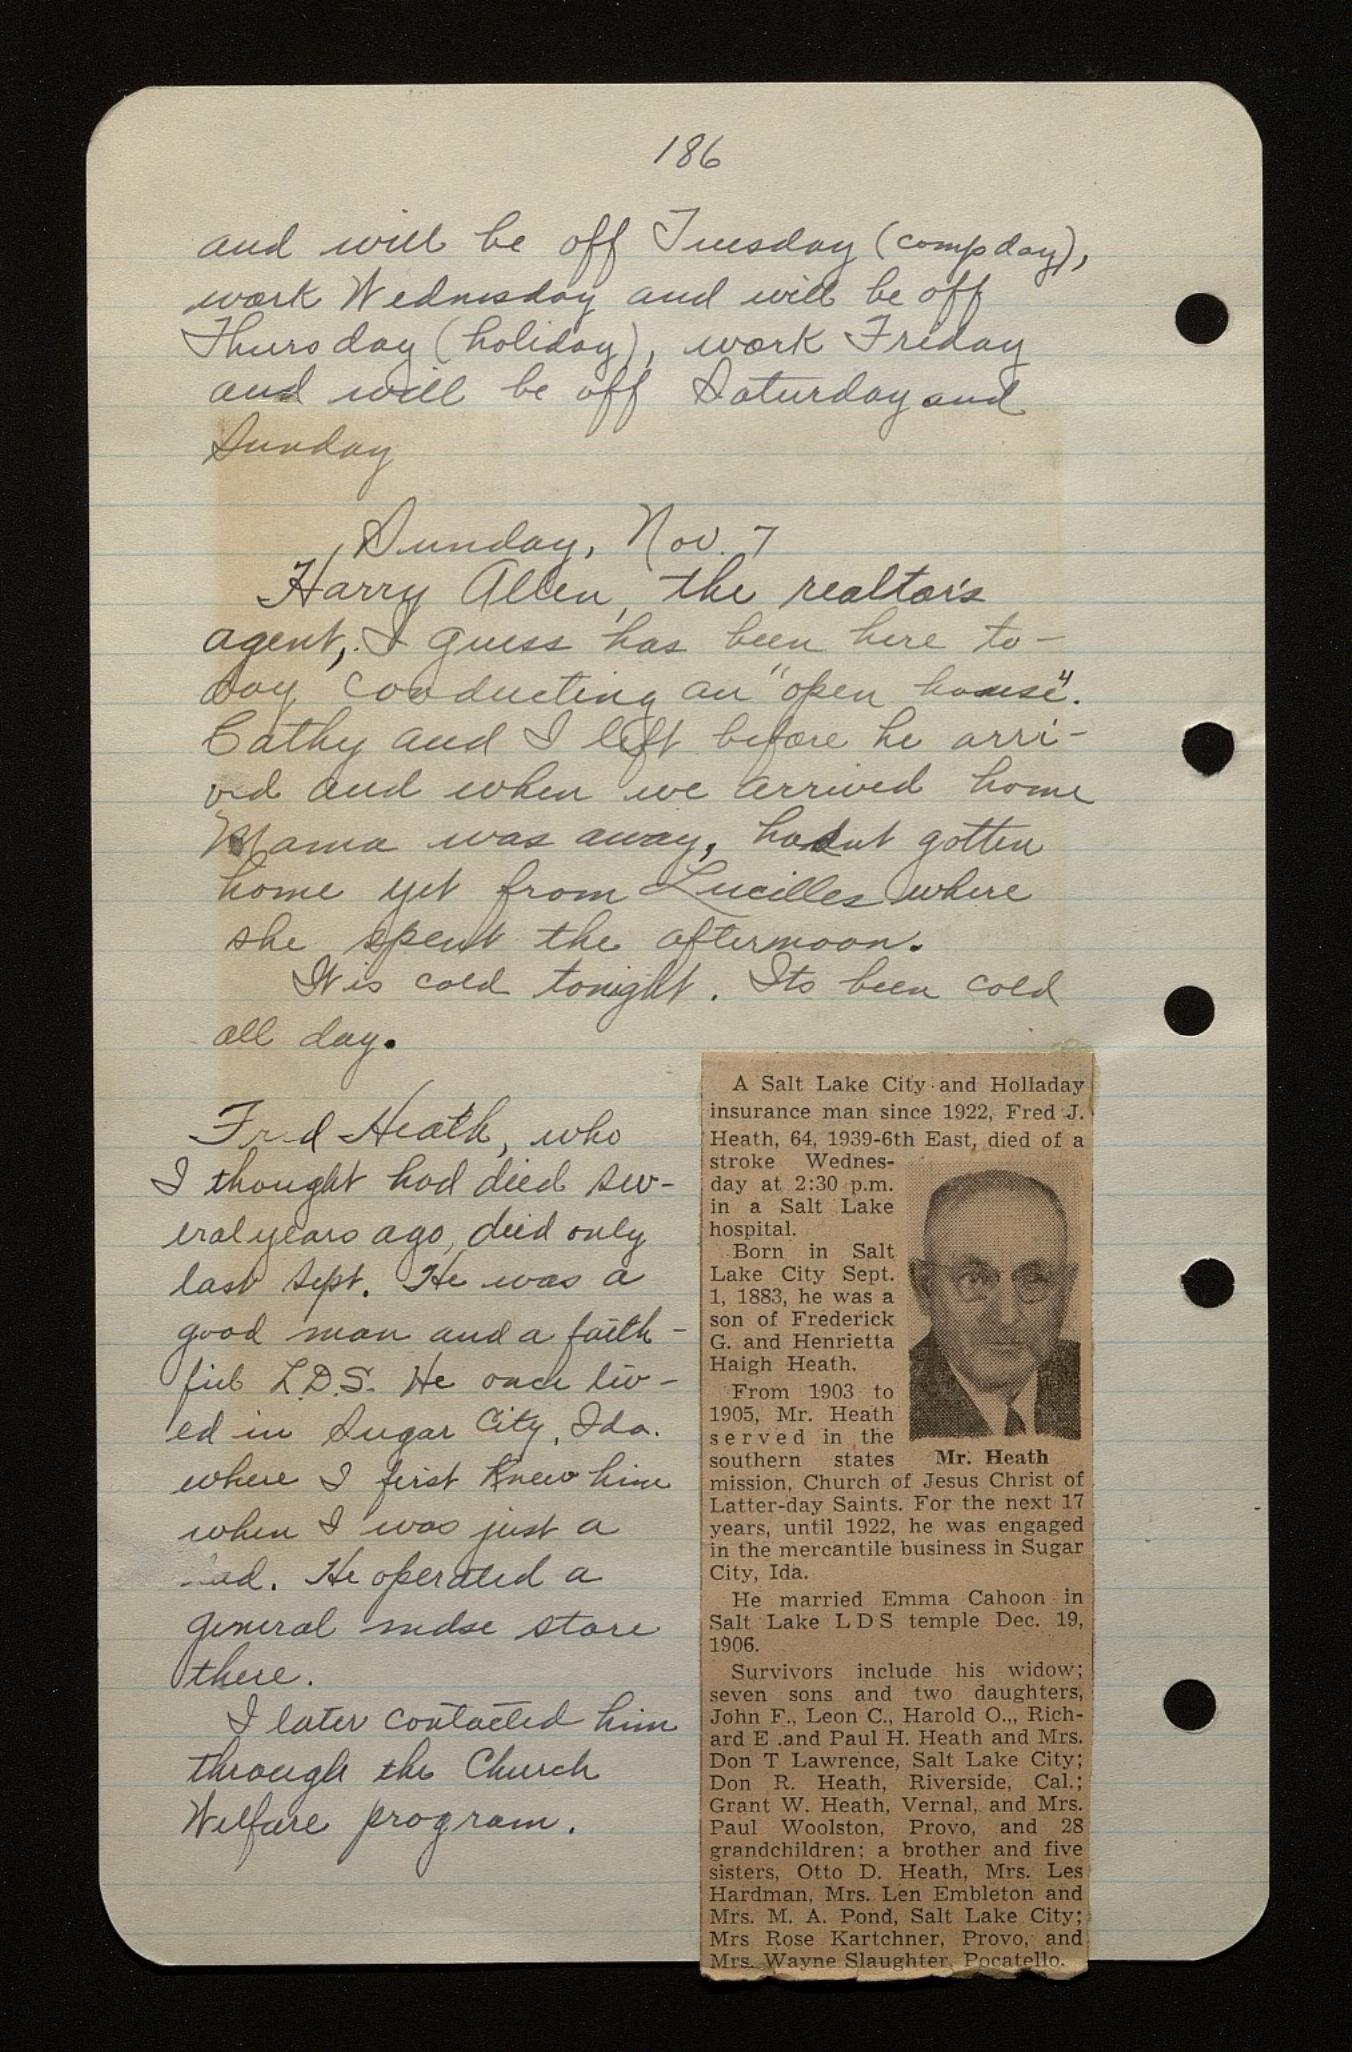 186
and will be off Tuesday (comp day),
work Wednesday and will be off
Thursday (holiday), work Friday
and will be off Saturday and
Sunday
Sunday, Nov. 7
Harry Allen, the realtor's
agent, I guess has been here to-
day conducting an "open house".
Cathy and I left before he arri-
ved and when we arrived home
Mama was away, hadnt gotten
home yet from Lucilles where
she spent the afternoon.
It is cold tonight. Its been cold
all day.
Fred Heath, who
I thought had died sev-
eral years ago, died only
last Sept. He was a
good man and a faith-
ful L.D.S. He once liv-
ed in Sugar City, Ida.
where I first knew him
when I was just a
lad. He operated a
general mdse store
there.
I later contacted him
through the Church
Welfare program.
A Salt Lake City and Holladay
insurance man since 1922, Fred J.
Heath, 64, 1939-6th East, died of a
stroke Wednes-
day at 2:30 p.m.
in a Salt Lake
hospital.
Born in Salt
Lake City Sept.
1, 1883, he was a
son of Frederick
G. and Henrietta
Haigh Heath.
From 1903 to
1905, Mr. Heath
served in the
southern states
Mr. Heath
mission, Church of Jesus Christ of
Latter-day Saints. For the next 17
years, until 1922, he was engaged
in the mercantile business in Sugar
City, Ida.
He married Emma Cahoon in
Salt Lake LDS temple Dec. 19,
1906.
Survivors include his widow;
seven sons and two daughters,
John F., Leon C., Harold O.,, Rich-
ard E .and Paul H. Heath and Mrs.
Don T Lawrence, Salt Lake City;
Don R. Heath, Riverside, Cal.;
Grant W. Heath, Vernal, and Mrs.
Paul Woolston, Provo, and 28
grandchildren; a brother and five
sisters, Otto D. Heath, Mrs. Les
Hardman, Mrs. Len Embleton and
Mrs. M. A. Pond, Salt Lake City;
Mrs Rose Kartchner, Provo, and
Mrs. Wayne Slaughter, Pocatello.